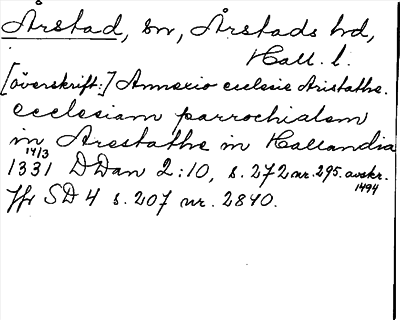 Årstad, sn, Årstads hd,
Hall. l.
[överskrift:] Annexio ecclesie Aristathe.
ecclesiam parrochialem
in Arestathe in Hallandia
14/3
1331 DDan 2:10, s. 272 nr. 295. avskr. 1494
Jfr SD 4 s. 207 nr. 2840.